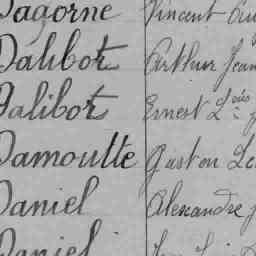 Dagorne Vincent
Dalibot Arthur Jean
Dalibot Ernest Louis
Damoutte Gaston
Daniel Alexandre
Daniel